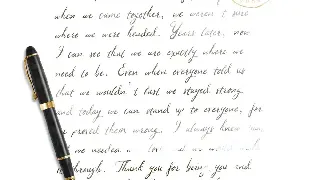 when we came together, we weren't sure
where we were headed. Years later, now
I can see that we are exactly where we
need to be. Even when everyone told us
that we wouldn't last we stayed strong
and today we can stand up to everyone, for
proved them wrong. I always knew
we needed
through. Thank you for being you and